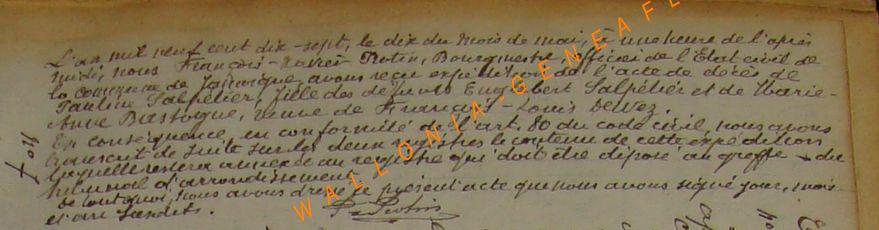 L'an mil neuf cent dix-sept, le dix du mois de mai, à une heure de l'après
midi, nous François-Xavier Protin, Bourgmestre, officier de l'Etat civil de
la commune de avons reçu expédition de l'acte de décès de
Pauline Salpétier, fille des défunts Englebert Salpétier et de Marie-
Anne Bastogne, veuve de François-Louis Dewez.
En conséquence, en conformité de l'art. 80 du code civil, nous avons
transcrit de suite sur les deux registres le contenu de cette expédition
laquelle restera annexée au registre qui doit être déposé au greffe du
tribunal d'arrondissement.
De tout quoi, nous avons dressé le présent acte que nous avons signé jour, mois
et an susdits.
Protin
WALLONIA-GENEAFL